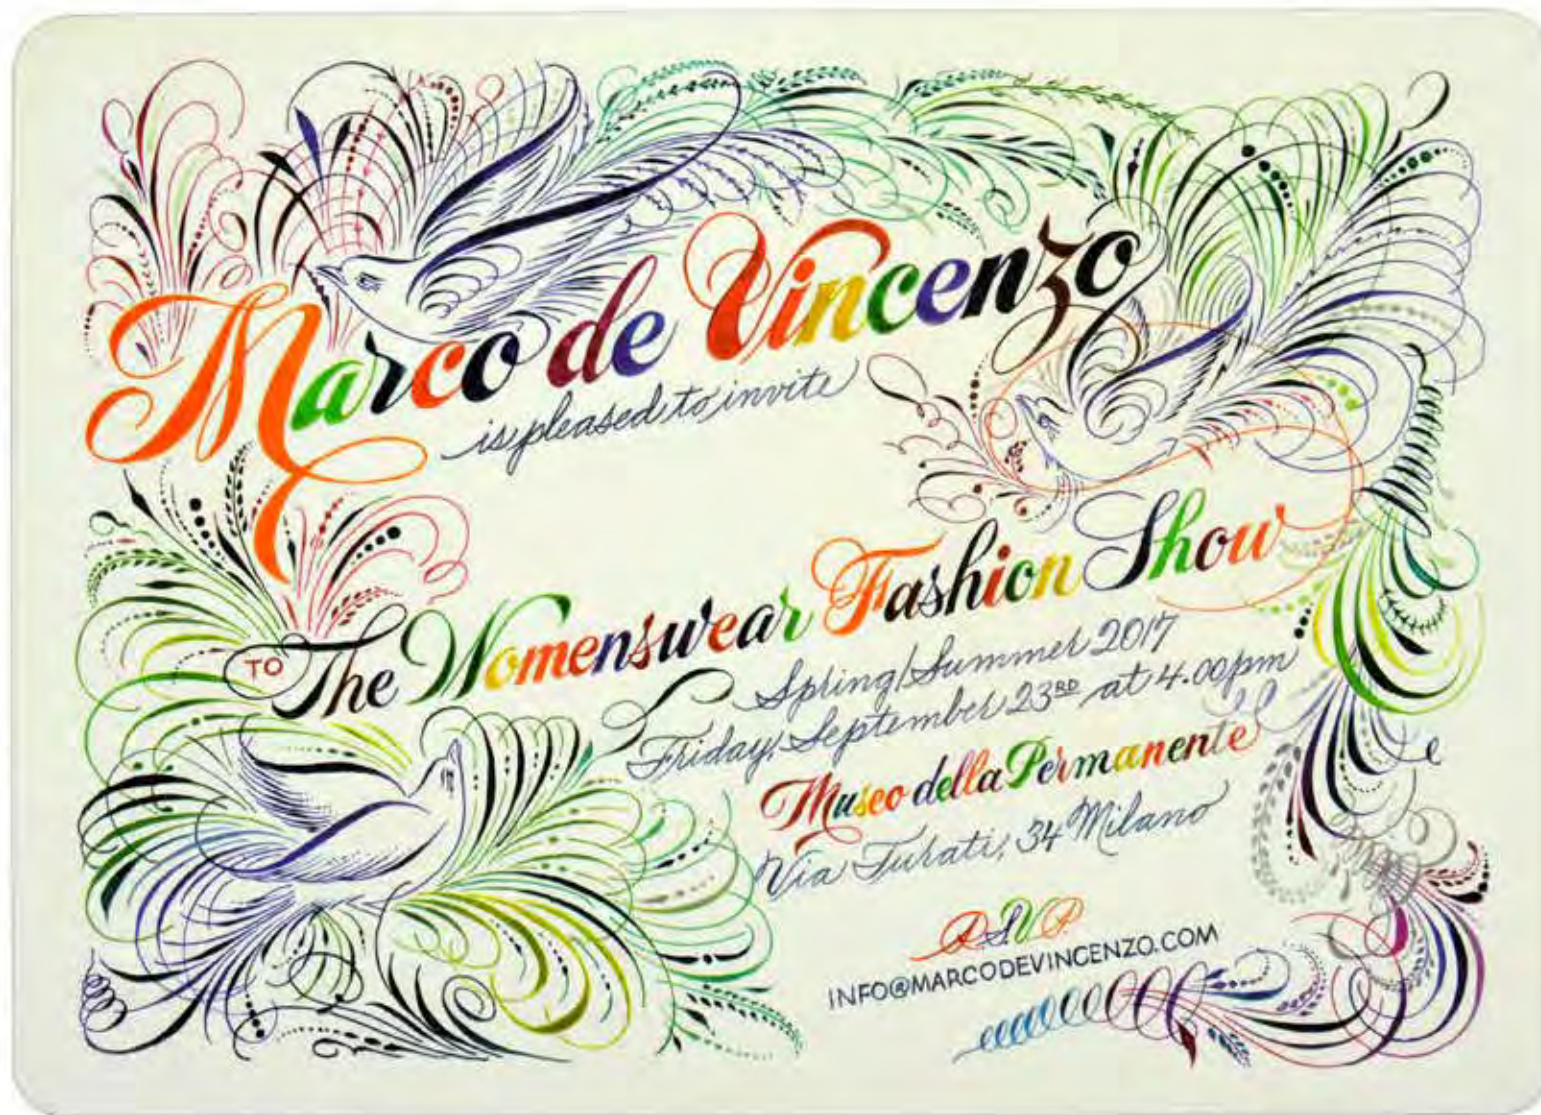 Marco de Vincenzo
is pleased to invite
TO The Womenswear Fashion Show
Spring/Summer 2017
Friday, September 23RD at 4.00pm
Museo della Permanente
Via Turati, 34 Milano
RSVP
INFO@MARCODEVINCENZO.COM